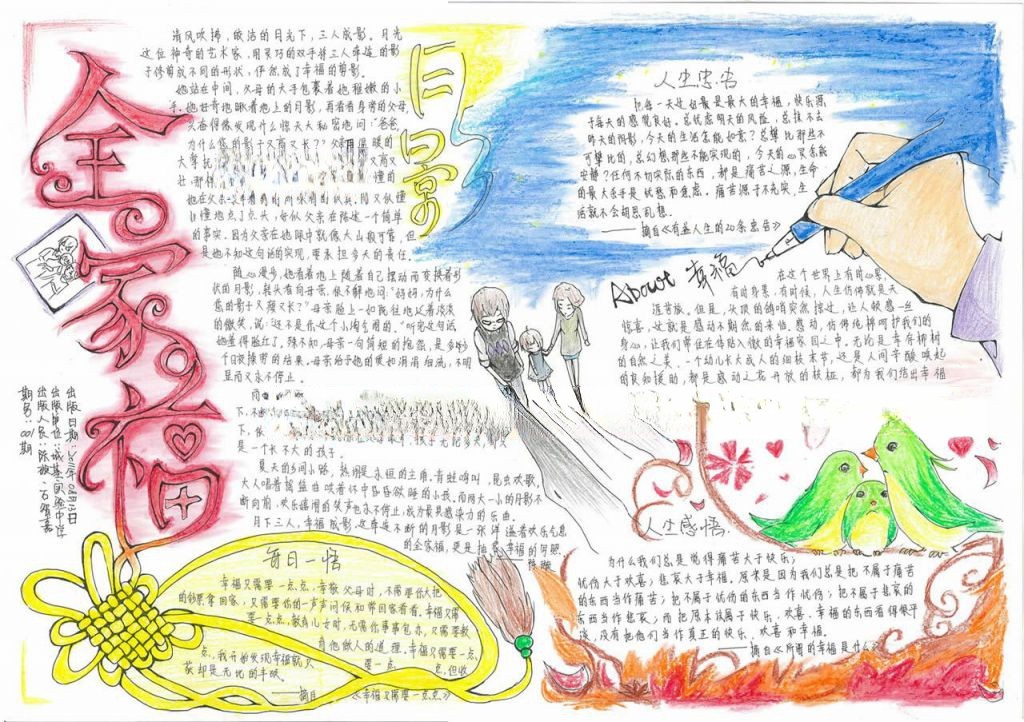 全家福
月影
清风吹拂，皎洁的月光下，三人成影。月光
这位神奇的艺术家，用灵巧的双手将三人牵连的影
子修剪成不同的形状，俨然成了幸福的剪影。
她站在中间，父母的大手包裹着她稚嫩的小
手，她好奇地瞅着地上的月影，再看看身旁的父母，
头奋得像发现什么惊天大秘密地问：“爸爸，
为什么您的影子又高又长？”
大掌抚
又高又
壮，那得
懂的
的事实。因为父亲在她眼中就像大山般可靠，但
是她不知这句话的实现，要承担多大的责任。
随心漫步，她看着地上随着自己摆动而变换着形
状的月影，转头看向母亲，很不解地问：“妈妈，为什么
您的影子又瘦又长？”母亲脸上一如既往地泛着淡淡
的微笑，说：“还不是你这个小淘气闹的。”听完这句话
她羞得脸红了，殊不知，母亲一句简短的抱怨，是多少
个日夜操劳的结果，母亲给予她的爱如涓涓细流，不明
显而又永不停止。
是一个长不大的孩子。
夏天的乡间小路，热闹是永恒的主角，青蛙呜叫，昆虫欢歌，
大人唱着摇篮曲哄着怀中昏昏欲睡的小孩，而两大一小的月影不
断向前，欢乐嬉闹的笑声也永不停止，成为最具感染力的乐曲。
月下三人，幸福成影，这牵连不断的月影是一张洋溢着欢乐气息
的全家福，更是抽象幸福的写照。
人生忠告
把每一天这也最是最大的幸福，快乐源
于每天的感觉良好。总忧虑明天的风险，总挂不去
昨天的阴影，今天的生活怎能如意？总攀比那些不
可攀比的，总幻想那些不能实现的，今天的心灵怎能
安静？任何不切实际的东西，都是痛苦之源，生命
的最大杀手是忧愁和焦虑。痛苦源于不充实，生
活就不会胡思乱想。
——摘自《有益人生的20条忠告》
About 幸福
在这个世界上有时心累，
有时身累，有时候，人生仿佛就是天
涯苦旅。但是，头顶的鸽哨突然掠过，让人顿感一丝
惊喜，这就是感动不期然的来临。感动，仿佛纯粹呵护我们的
身心，让我们常住在体贴入微的幸福家园之中。无论是幸存柳树
的自然之美、一个幼儿长大成人的细枝末节，还是人间辛酸唤起
的良知援助，都是感动之花开放的枝桠，都为我们结出幸福
人生感悟
为什么我们总是觉得痛苦大于快乐；
忧伤大于欢喜；悲哀大于幸福。原来是因为我们总是把不属于痛苦
的东西当作痛苦；把不属于忧伤的东西当作忧伤；把不属于悲哀的
东西当作悲哀；而把原本该属于快乐、欢喜、幸福的东西看得很平
淡，没有把他们当作真正的快乐、欢喜和幸福。
——摘自《所谓的幸福是什么》
每日一悟
幸福只需要一点点，孝敬父母时，不需要你大把
的钞票拿回家，只需要你的一声声问候和常回家看看，幸福只需
要一点点，教育儿女时，无需你事事包办，只需要教
育他做人的道理，幸福只需要一点点，
点，我开始发现幸福就只
要一点点，但收
获却是无比的丰硕。
——摘自《幸福只需要一点点》
期号：001期